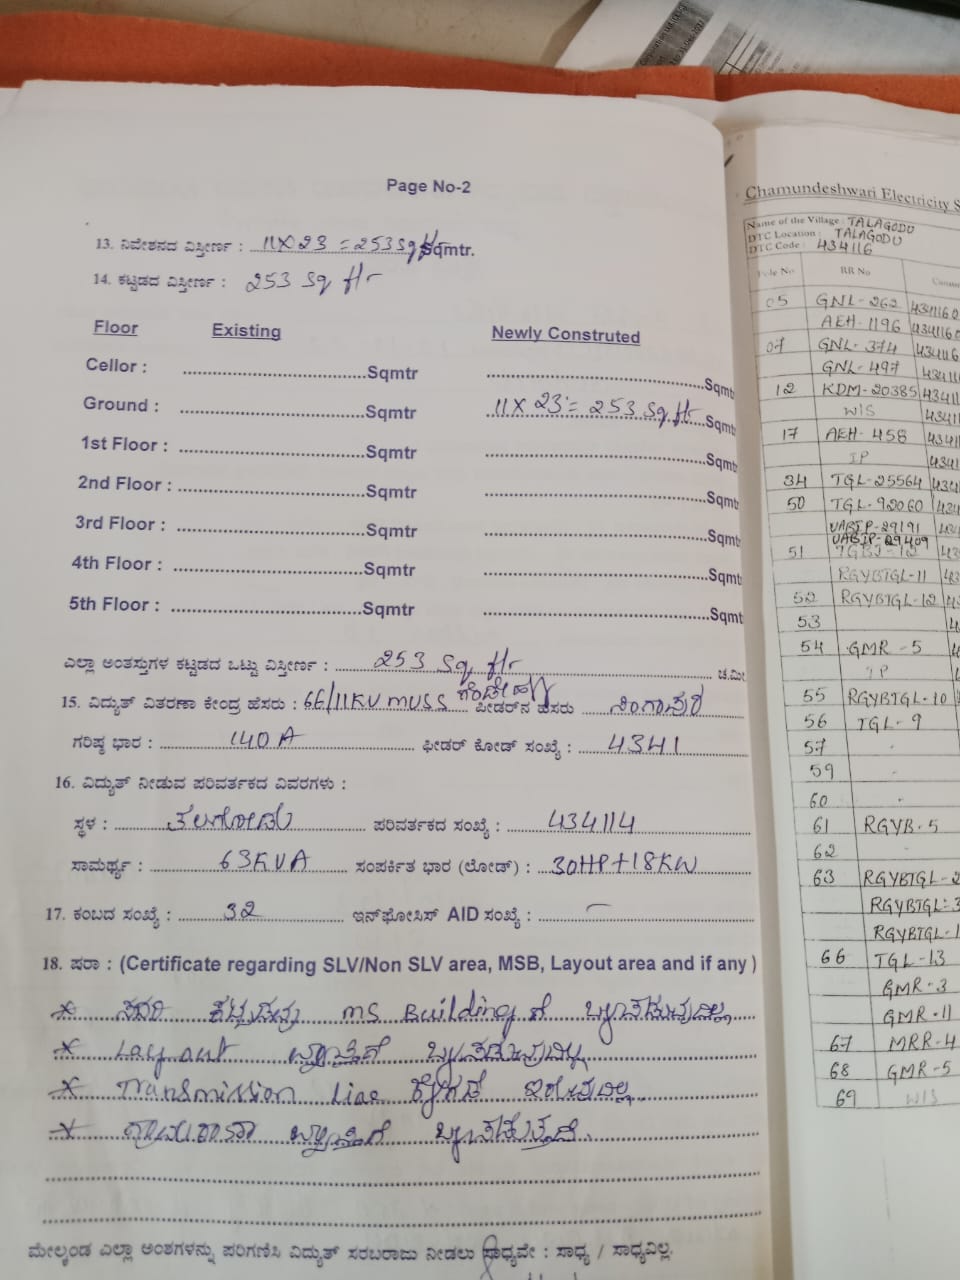 Page No-2
13. ನಿವೇಶನದ ವಿಸ್ತೀರ್ಣ : 11X23 = 253 Sq Sqmtr.
14. ಕಟ್ಟಡದ ವಿಸ್ತೀರ್ಣ : 253 Sq ftr
Floor Existing Newly Construted
Cellor : Sqmtr Sqmt
Ground : Sqmtr 11X 23' = 253 Sq ftr Sqmt
1st Floor : Sqmtr Sqmt
2nd Floor : Sqmtr Sqmt
3rd Floor : Sqmtr Sqmt
4th Floor : Sqmtr Sqmt
5th Floor : Sqmtr Sqmt
ಎಲ್ಲಾ ಅಂತಸ್ತುಗಳ ಕಟ್ಟಡದ ಒಟ್ಟು ವಿಸ್ತೀರ್ಣ : 253 Sq ftr ಚ.ಮೀ
15. ವಿದ್ಯುತ್ ವಿತರಣಾ ಕೇಂದ್ರ ಹೆಸರು : 66/11KV MUSS ಪೀಡರ್‌ನ ಹೆಸರು
ಗರಿಷ್ಠ ಭಾರ : 140 A ಫೀಡರ್ ಕೋಡ್ ಸಂಖ್ಯೆ : 4341
16. ವಿದ್ಯುತ್ ನೀಡುವ ಪರಿವರ್ತಕದ ವಿವರಗಳು :
ಸ್ಥಳ : ತಲಗೋಡು ಪರಿವರ್ತಕದ ಸಂಖ್ಯೆ : 434114
ಸಾಮರ್ಥ್ಯ : 63KVA ಸಂಪರ್ಕಿತ ಭಾರ (ಲೋಡ್) : 30HP+18KW
17. ಕಂಬದ ಸಂಖ್ಯೆ : 32 ಇನ್‌ಫೋಸಿಸ್ AID ಸಂಖ್ಯೆ : —
18. ಷರಾ : (Certificate regarding SLV/Non SLV area, MSB, Layout area and if any )
* ಸದರಿ ಕಟ್ಟಡವು MS Building ಗೆ
* Layout ವ್ಯಾಪ್ತಿಗೆ
* Transmission Line ಕೆಳಗಡೆ ಇರುವುದಿಲ್ಲ
* ವ್ಯಾಪ್ತಿಗೆ
ಮೇಲ್ಕಂಡ ಎಲ್ಲಾ ಅಂಶಗಳನ್ನು ಪರಿಗಣಿಸಿ ವಿದ್ಯುತ್ ಸರಬರಾಜು ನೀಡಲು ಸಾಧ್ಯವೇ : ಸಾಧ್ಯ / ಸಾಧ್ಯವಿಲ್ಲ.
Chamundeshwari Electricity S
Name of the Village : TALAGODU
DTC Location : TALAGODU
DTC Code : 434116
Pole No RR No
05 GNL-262 4341160
AEH-1196 4341160
07 GNL-374 434116
GNL-497 43411
12 KDM-20385 43411
WIS 4341
17 AEH-458 4341
IP 4341
34 TGL-25564 434
50 TGL-92060 434
UABIP-29191
UABIP-29409
51
RGYBTGL-11
52 RGYBTGL-12
53
54 GMR-5
IP
55 RGYBTGL-10
56 TGL-9
57
59
60
61 RGYB-5
62
63 RGYBTGL-2
RGYBTGL-3
RGYBTGL-1
66 TGL-13
GMR-3
GMR-11
67 MRR-4
68 GMR-5
69 WIS